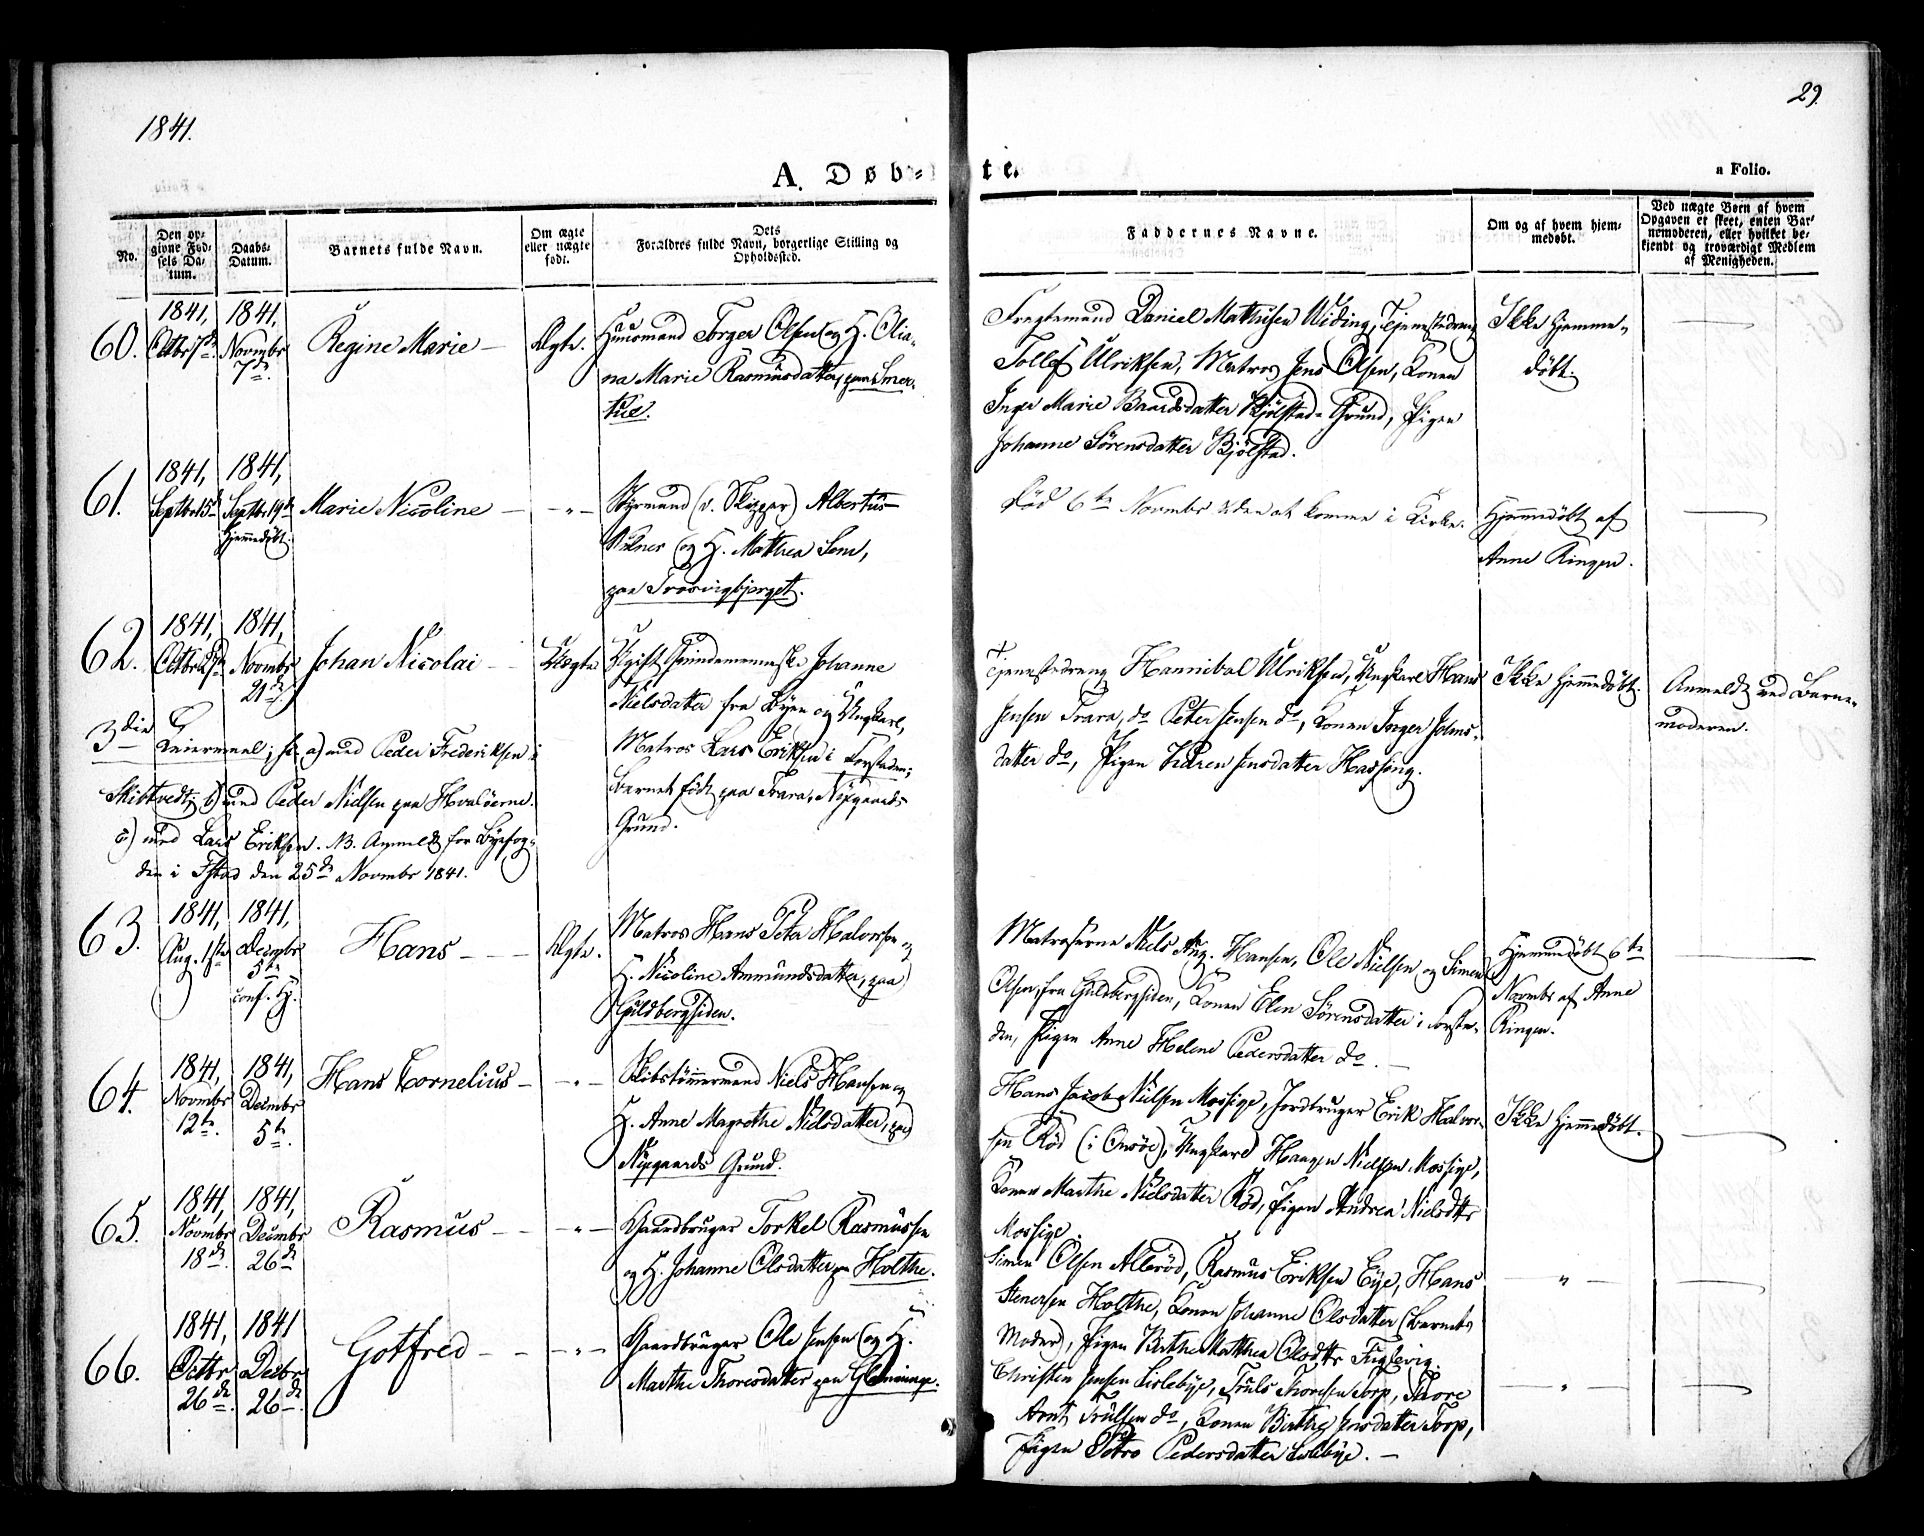 1841.
29.
A. Døb-
te.
a Folio.
No.
Den op-
givne Fød-
sels Da-
tum.
Daabs-
Datum.
Barnets fulde Navn.
Om ægte
eller uægte
født.
Dets
Forældres fulde Navn, borgerlige Stilling og
Opholdssted.
Faddernes Navne.
Om og af hvem hjem-
medøbt.
Ved uægte Børn af hvem
Opgaven er skeet, enten Bar-
nemoderen, eller hvilket be-
kjendt og troværdigt Medlem
af Menigheden.
60.
1841,
Octbr 7de
1841,
Novmbr
7de.
Regine Marie –
Ægte.
Huusmand Torger Olsen og H. Olia-
na Marie Rasmusdatter, paa Smer-
tue.
Fragtemand Daniel Mathisen Widing, Tjenestedreng
Tollef Ulriksen, Matros Jens Olsen, Konen
Inger Marie Baardsdatter Kjølstad-Grund, Pigen
Johanne Sørensdatter Kjølstad.
Ikke hjemme-
døbt.
61.
1841,
Septbr 15de
1841,
Septbr 19de
hjemmedøbt.
Marie Nicoline –
– " –
Styrmand (v. Skipper) Albertus
og H. Mathea Lem,
paa Trosvigbjerget.
Død 6te Novmbr uden at komme i Kirke.
Hjemmedøbt af
Anne Ringen.
62.
1841,
Octbr
1841,
Novmbr
21de
Johan Nicolai –
Uægte
Ugift Qvindemenneske Johanne
Nielsdatter fra Byen og Ungkarl,
Matros Lars Eriksen i Forstaden;
Barnet født paa Trara, Nygaards
Grund.
3die Leiermaal; a) med Peder Frederiksen i
Skibtvedt; b) med Peder Nielsen paa Hvaløerne.
c) med Lars Eriksen. NB. Anmeldt for Byfog-
den i Fstad den 25de Novmbr 1841.
Tjenestedreng Hannibal Ulriksen, Ungkarl Hans
Jensen Trara, do Peter Jensen do, Konen Inger Johns-
datter do, Pigen Karen Jensdatter Hassing.
Ikke hjemmedøbt.
Anmeldt ved Barne-
moderen.
63.
1841,
Aug. 1ste
1841,
Decmbr
5te
conf. Hj.
Hans – –
Ægte.
Matros Hans Peter Halvorsen og
H. Nicoline Ammundsdatter, paa
Guldbergsiden.
Matroserne Niels Aug. Hansen, Ole Nielsen og Simen
Olsen, fra Guldbergsiden, Konen Elen Sørensdatter i Forsta-
den, Pigen Anne Helene Pedersdatter do. –
Hjemmedøbt 6te
Novmbr af Anne
Ringen.
64.
1841,
Novmbr
12te.
1841,
Decmbr
5te.
Hans Cornelius –
– " –
Skibstømmermand Niels Hansen og
H. Anne Magrethe Nielsdatter, paa
Nygaards Grund.
Hans Jacob Nielsen Mossige, Jordbruger Erik Halvor-
sen Rød (i Onsøe), Ungkarl Haagen Nielsen Mossige,
Konen Marthe Nielsdatter Rød, Pigen Andrea Nielsdtr
Mossige.
Ikke hjemmedøbt.
65.
1841,
Novmbr
18de.
1841,
Decmbr
26de
Rasmus –
– " –
Gaardbruger Torkel Rasmussen
og H. Johanne Olsdatter paa Holthe.
Simen Olsen Allerød, Rasmus Eriksen Eye, Hans
Stenersen Holthe, Konen Johanne Olsdatter (Barnets
Moder), Pigen Birthe Mathea Olsdtr Fuglevig.
– " –
66.
1841,
Octbr
26de.
1841
Decbr
26de.
Gotfred – –
– " –
Gaardbruger Ole Jensen og H.
Marthe Thoresdatter paa Glemminge.
Christen Jensen Lislebye, Truls Thoresen Torp, Thore
Arnt Trulsen do, Konen Birthe Jensdatter Torp,
Pigen Petro Pedersdatter Lislebye. –
– " –